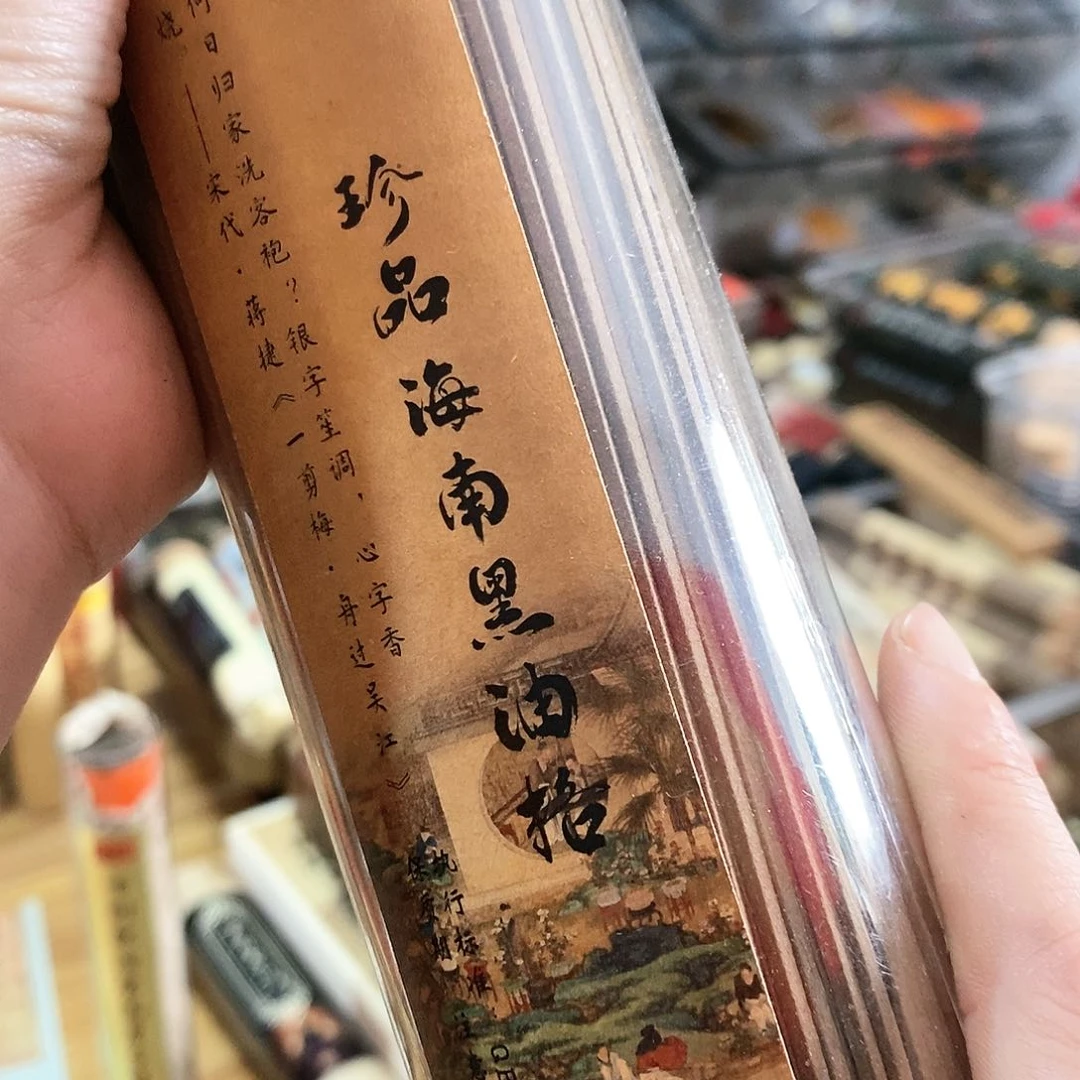 珍品海南黑油格
何日归家洗客袍？银字笙调，心字香
烧
——宋代·蒋捷《一剪梅·舟过吴江》
执行标准